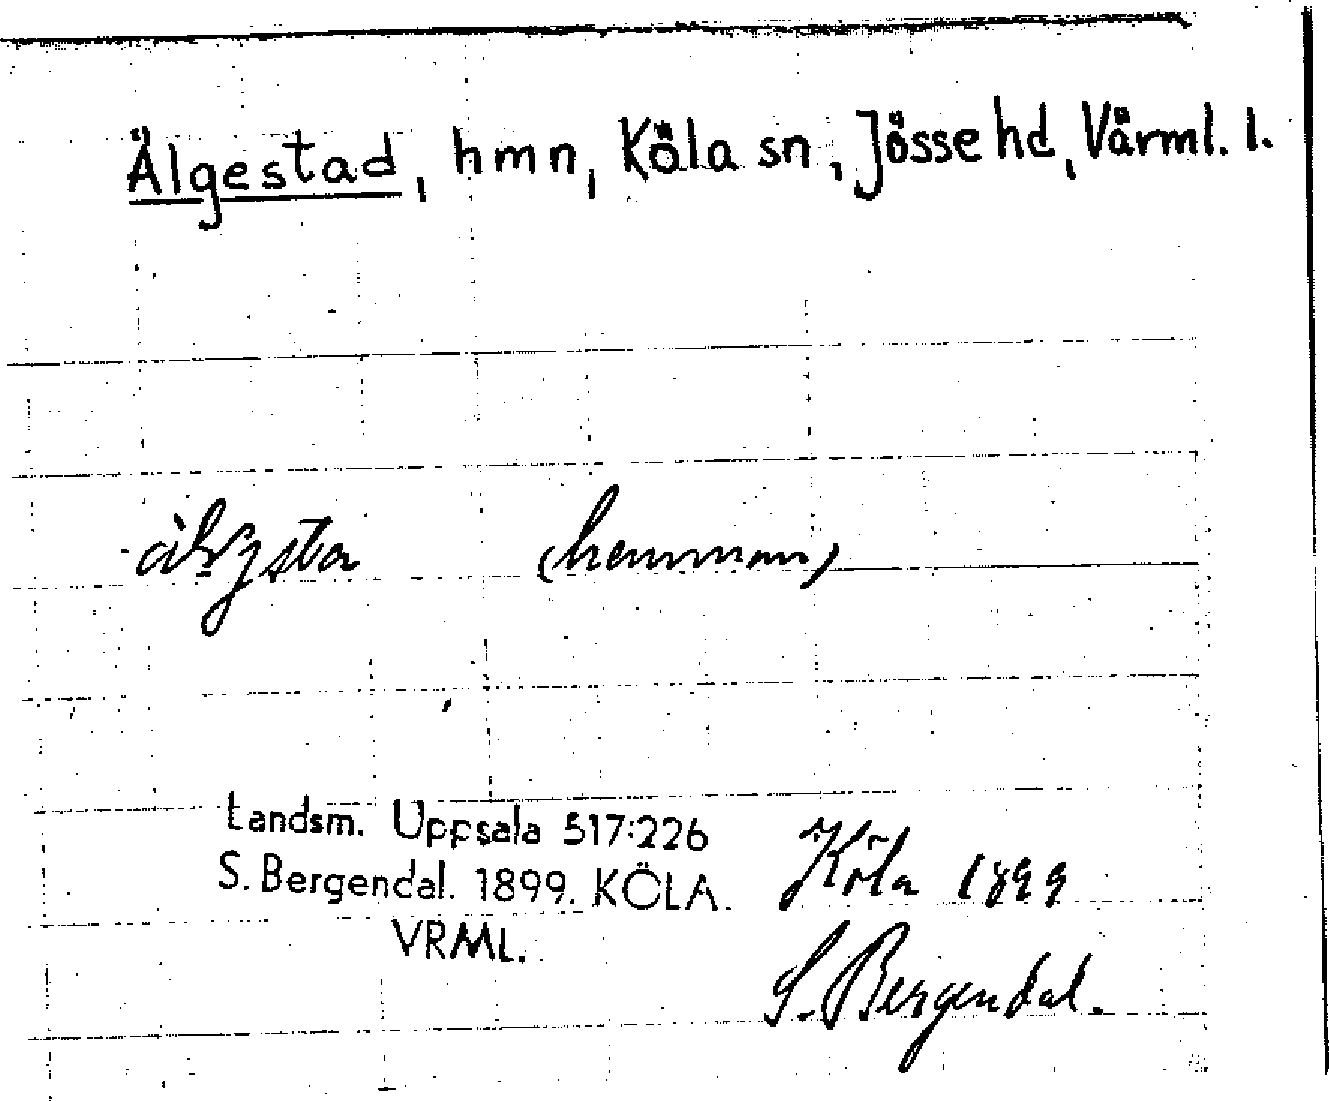 Älgestad, hmn, Köla sn, Jösse hd, Värml. l.
(hemman)
Landsm. Uppsala 517:226
S. Bergendal. 1899. KÖLA.
VRML.
Köla 1899
S. Bergendal.